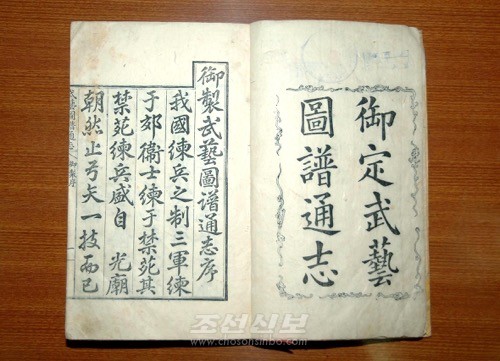 御定武藝
圖譜通志
御製武藝圖譜通志序
我國練兵之制三軍練
于郊衞士練于禁苑其
禁苑練兵盛自　光廟
朝然止弓矢一技而已
조선신보
www.chosonsinbo.com